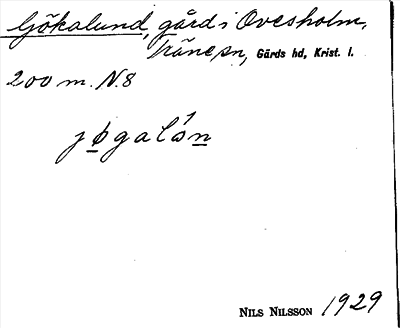 Gökalund, gård i Ovesholm,
Träne sn, Gärds hd, Krist. l.
200 m. N. 8
NILS NILSSON 1929